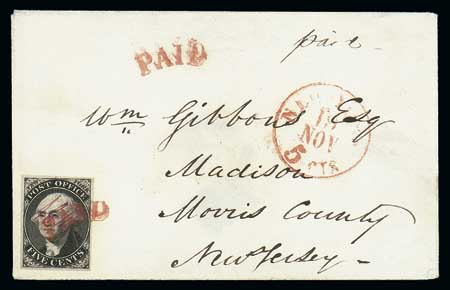 PAID
paid
Wm Gibbons Esq
NEW
15
NOV
5 cts
Madison
Morris County
New Jersey
POST OFFICE
FIVE CENTS